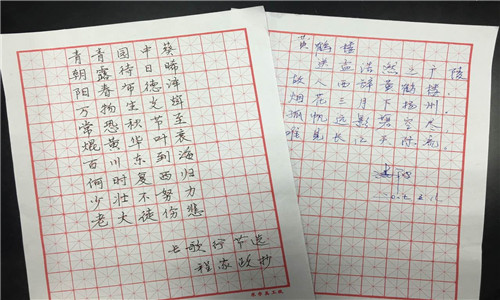 青青园中葵
朝露待日晞
阳春布德泽
万物生光辉
常恐秋节至
焜黄华叶衰
百川东到海
何时复西归
少壮不努力
老大徒伤悲
长歌行节选
程家政抄
黄鹤楼
送孟浩然之广陵
故人西辞黄鹤楼,
烟花三月下扬州.
孤帆远影碧空尽
唯见长江天际流.